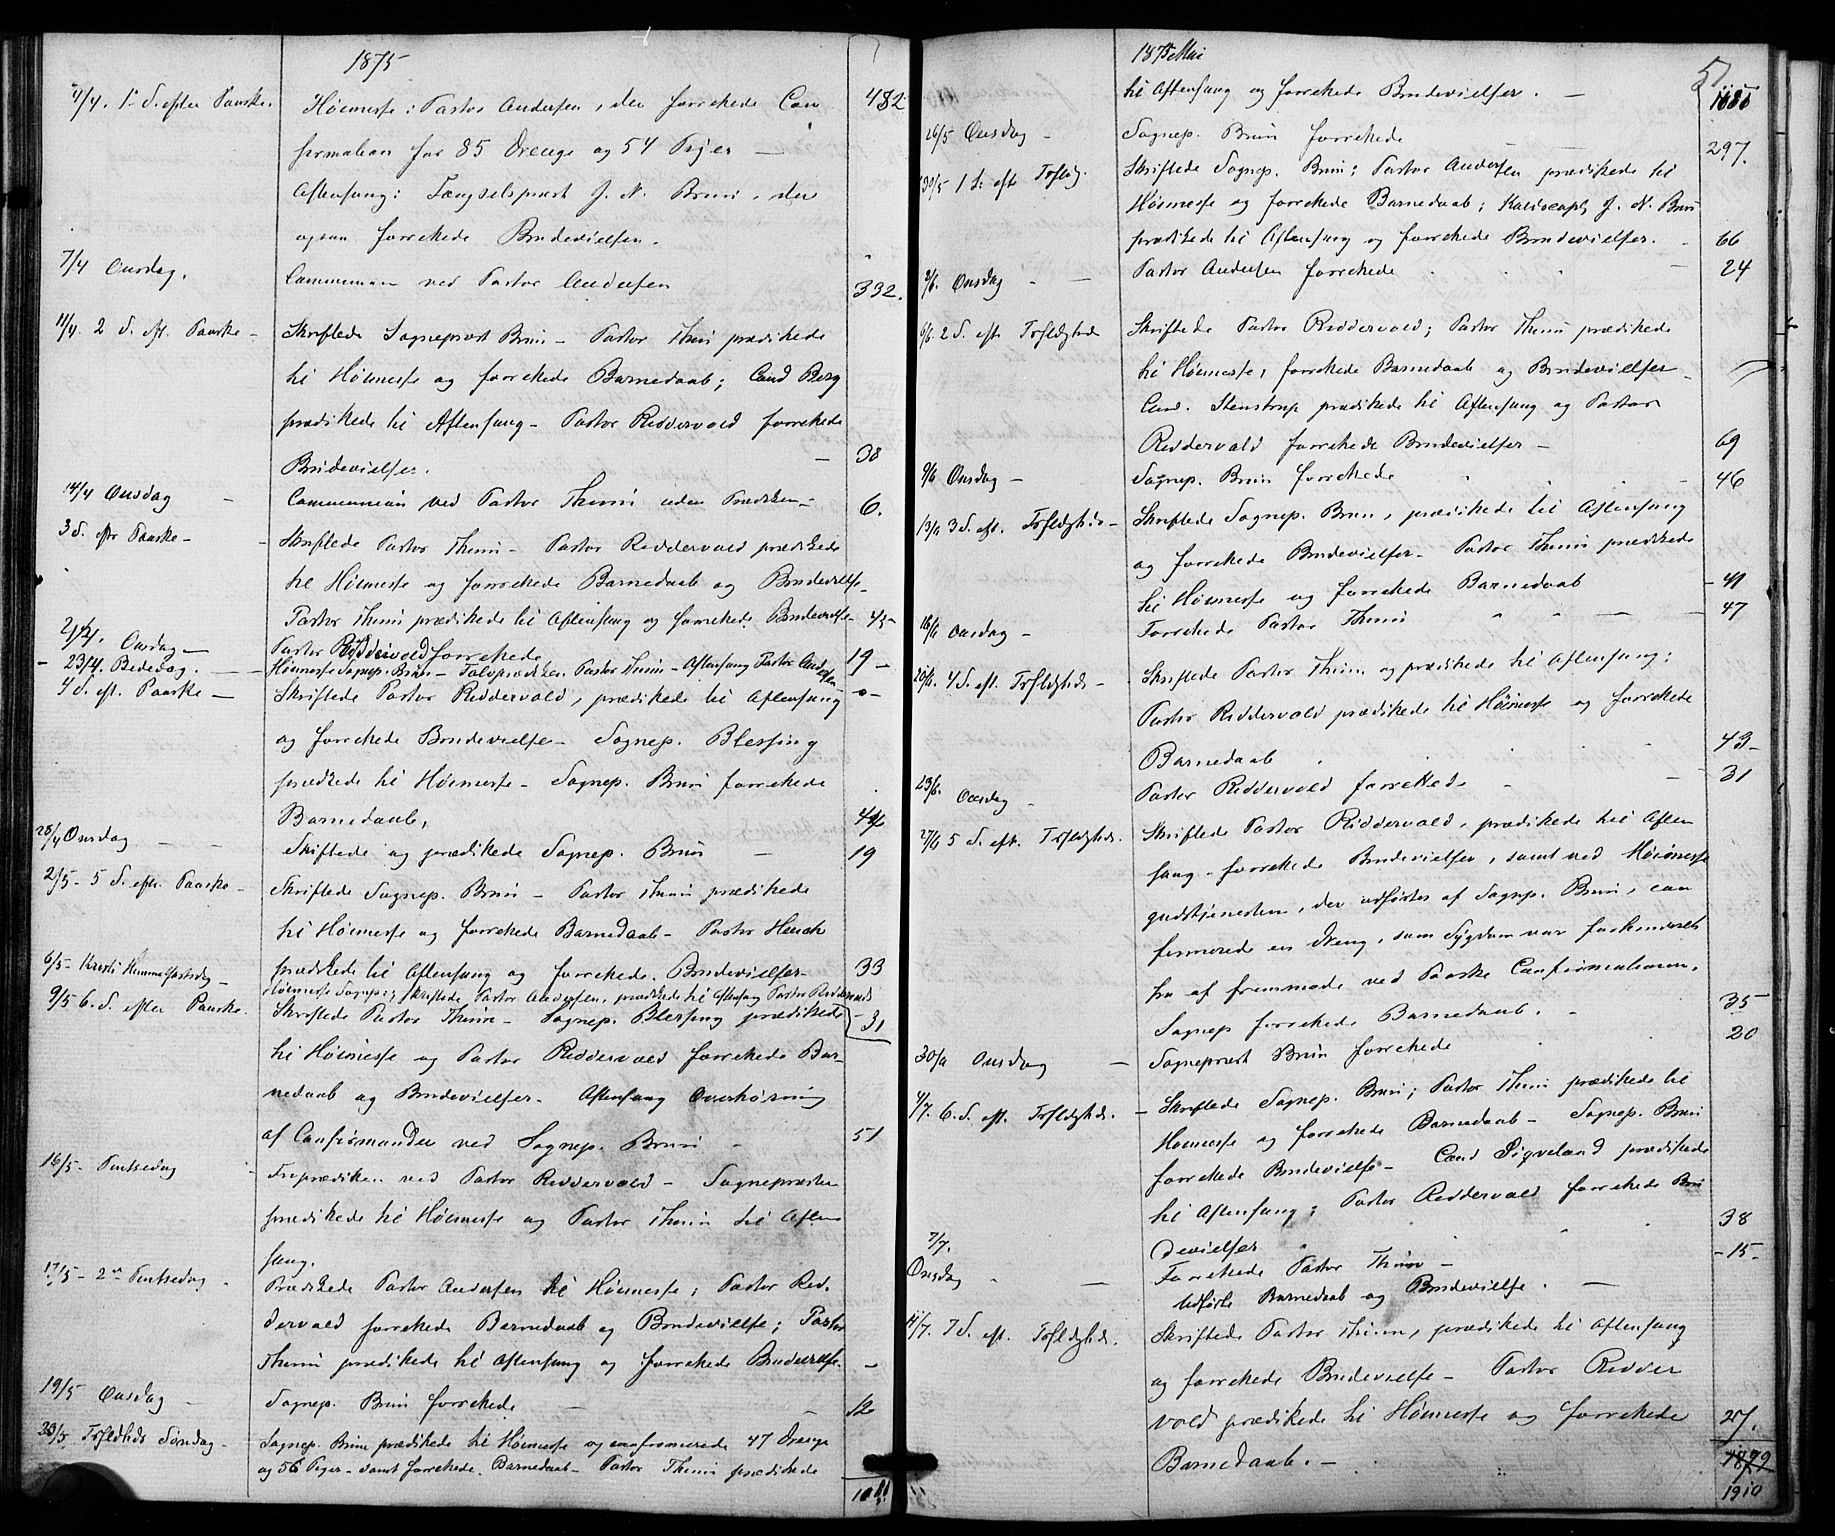 1875
4/4. 1ste S. efter Paaske. Høimesse: Pastor Andersen, der forrettede Con 482
firmation for 85 Drenge og 54 Piger —
Aftensang: Fængselspræst J. N. Bruun, der
ogsaa forrettede Brudevielsen.
7/4 Onsdag. Communion ved Pastor Andersen 332.
11/4. 2 S. eft. Paaske — Skriftede Sognepræst Bruun — Pastor Thuun prædikede
til Høimesse og forrettede Barnedaab; Cand Berg
prædikede til Aftensang — Pastor Riddervold forrettede
Brudevielser. — 38
14/4 Onsdag — Communion ved Pastor Thuun uden Prædiken — 6.
3 S. eftr Paaske — Skriftede Pastor Thuun — Pastor Riddervold prædikede
til Høimesse og forrettede Barnedaab og Brudevielse —
Pastor Thuun prædikede til Aftensang og forrettede Brudevielse — 43 —
21/4. Onsdag — Pastor Riddervold forrettede 19 —
— 23/4. Bededag. — Høimesse Sognep. Bruun — Froprædiken Pastor Thuun — Aftensang Pastor Andersen
4 S. eft. Paaske — Skriftede Pastor Riddervold, prædikede til Aftensang —o—
og forrettede Brudevielse — Sognep. Blessing
prædikede til Høimesse — Sognep. Bruun forrettede
Barnedaab, 44
28/4 Onsdag — — Skriftede og prædikede Sognep. Bruun — 19
2/5 — 5 S. efter Paaske — Skriftede Sognep. Bruun — Pastor Thuun prædikede
til Høimesse og forrettede Barnedaab — Pastor Heuch
prædikede til Aftensang og forrettede Brudevielser — 33
6/5 — Kristi Himmelfartsdag — Høimesse Sognep.; Skriftede Pastor Andersen, prædikede til Aftensang Pastor Riddervold
9/5 6. S. efter Paaske. Skriftede Pastor Thuun — Sognep. Blessing prædikede — 31
til Høimesse og Pastor Riddervold forrettede Bar-
nedaab og Brudevielser — Aftensang Overhøring
af Confirmander ved Sognep. Bruun — 51
16/5 — Pintsedag — Froprædiken ved Pastor Riddervold — Sognepræsten
prædikede til Høimesse og Pastor Thuun til Aften
sang.
17/5 — 2den Pintsedag — Prædikede Pastor Andersen til Høimesse; Pastor Rid-
dervold forrettede Barnedaab og Brudevielse; Pastor
Thuun prædikede til Aftensang og forrettede Brudevielse. —
19/5 Onsdag — Sognep. Bruun forrettede — 12
23/5 Trefoldheds Søndag — Sognep. Bruun prædikede til Høimesse og confirmerede 47 Drenge
og 56 Piger — samt forrettede Barnedaab — Pastor Thuun prædikede
1875 Mai
til Aftensang og forrettede Brudevielser. —
26/5 Onsdag — Sognep. Bruun forrettede — — 297.
30/5 1 S. eft. Trefoldg. Skriftede Sognep. Bruun; Pastor Andersen prædikede til
Høimesse og forrettede Barnedaab; J. N. Bruun
prædikede til Aftensang og forrettede Brudevielser. — 66
2/6. Onsdag — — Pastor Andersen forrettede — 24
6/6. 2 S. eft. Trefoldighede Skriftede Pastor Riddervold; Pastor Thuun prædikede
til Høimesse, forrettede Barnedaab og Brudevielser —
Cand. Stenstrup prædikede til Aftensang og Pastor
Riddervold forrettede Brudevielser — 69
9/6 Onsdag — Sognep. Bruun forrettede — 46
13/6 3 S. eft. Trefoldigheds — Skriftede Sognep. Bruun, prædikede til Aftensang
og forrettede Brudevielser — Pastor Thuun prædikede
til Høimesse og forrettede Barnedaab — 41
16/6 Onsdag — Forrettede Pastor Thuun — 47
20/6. 4 S. eft. Trefoldigheds — Skriftede Pastor Thuun og prædikede til Aftensang;
Pastor Riddervold prædikede til Høimesse og forrettede
Barnedaab 43 —
23/6. Onsdag — Pastor Riddervold forrettede — 31
27/6 5 S. eft. Trefoldigheds. Skriftede Pastor Riddervold, prædikede til Aften
sang — forrettede Brudevielser, samt ved Høimesse
gudstjenesten, der udførtes af Sognep. Bruun, con
firmerede en Dreng, som Sygdom var forhindret
fra at fremmøde ved Paaske Confirmationen.
Sognep forrettede Barnedaab. — 35
30/6 Onsdag — Sognepræst Bruun forrettede 20
4/7. 6. S. eft. Trefoldigheds. — Skriftede Sognep. Bruun; Pastor Thuun prædikede til
Høimesse og forrettede Barnedaab — Sognep. Bruun
forrettede Brudevielse — Cand Sigveland prædikede
til Aftensang; Pastor Riddervold forrettede Bru
devielser 38
7/7. Onsdag — Forrettede Pastor Thuun — — 15 —
Udførte Barnedaab og Brudevielse. —
11/7. 7 S. eft. Trefoldigheds. Skriftede Pastor Thuun, prædikede til Aftensang
og forrettede Brudevielse — Pastor Ridder
vold prædikede til Høimesse og forrettede 27.
Barnedaab. — 1899
1910